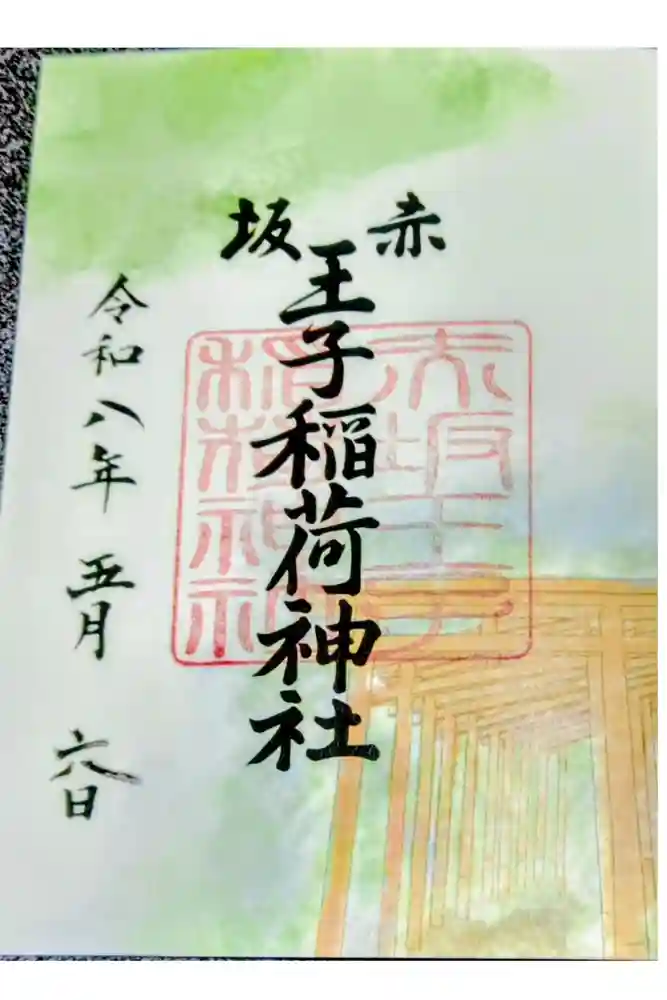 赤坂
王子稲荷神社
赤坂王子
稲荷神社
令和八年 五月 六日